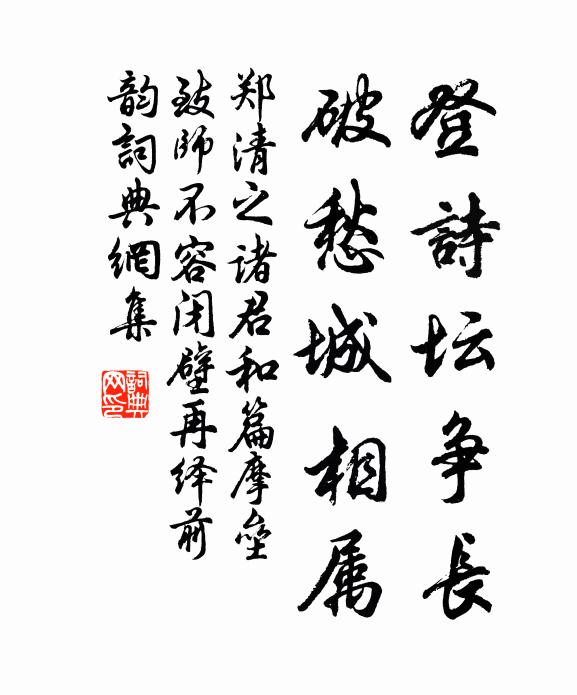 登詩坛争長
破愁城相属
郑清之诸君和篇摩垒
致师不容闭壁再绎前
韵詞典網集
詞典网印